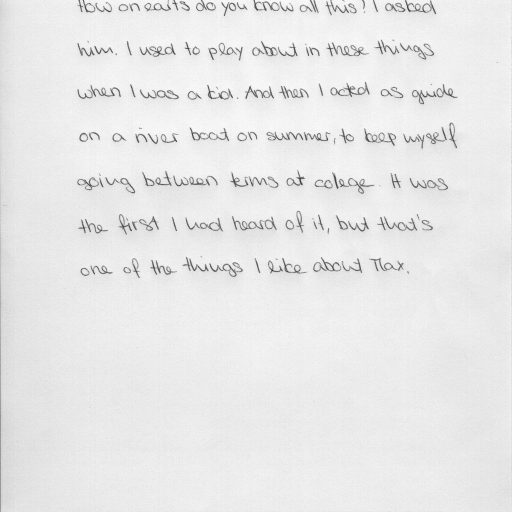 How on earts do you know all this! I asked
him. I used to play about in these things
when I was a kid. And then I acted as guide
on a river boat on summer, to keep myself
going between terms at colege. It was
the first I had heard of it, but that's
one of the things I like about Max.